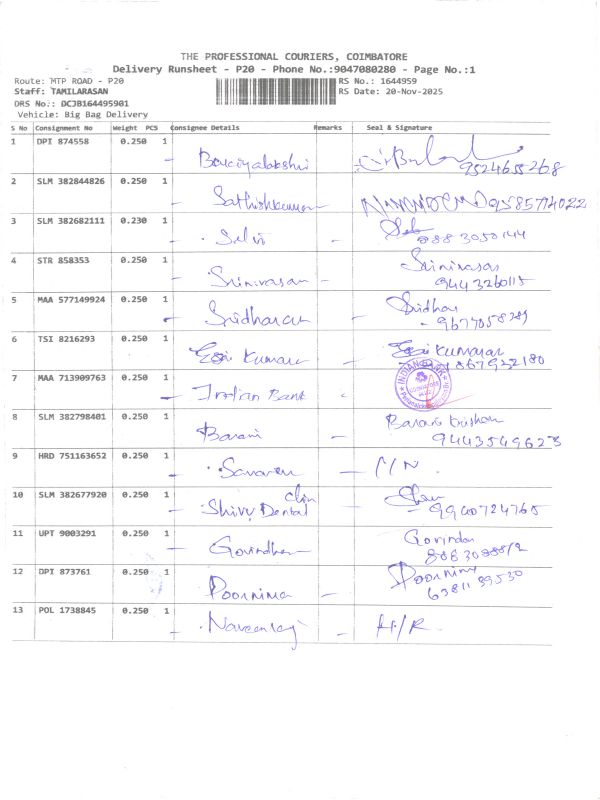 THE PROFESSIONAL COURIERS, COIMBATORE
Delivery Runsheet - P20 - Phone No.:9047080280 - Page No.:1
Route: MTP ROAD - P20 RS No.: 1644959
Staff: TAMILARASAN RS Date: 20-Nov-2025
DRS No.: DCJB164495901
Vehicle: Big Bag Delivery
S No Consignment No Weight PCS Consignee Details Remarks Seal & Signature
1 DPI 874558 0.250 1
9524655268
2 SLM 382844826 0.250 1
Sathishkumar 9585714022
3 SLM 382682111 0.230 1
Selvi 8883050144
4 STR 858353 0.250 1 Srinivasan
Srinivasan 9443260115
5 MAA 577149924 0.250 1 Sridhar
Sridharan
6 TSI 8216293 0.250 1
Kumar 867922180
7 MAA 713909763 0.250 1 INDIAN BANK
Indian Bank
8 SLM 382798401 0.250 1
Barani 9443549623
9 HRD 751163652 0.250 1
10 SLM 382677920 0.250 1
Dental 9940724765
11 UPT 9003291 0.250 1
Govindan
12 DPI 873761 0.250 1 Poornima
Poornima
13 POL 1738845 0.250 1
Naveenraj H/R